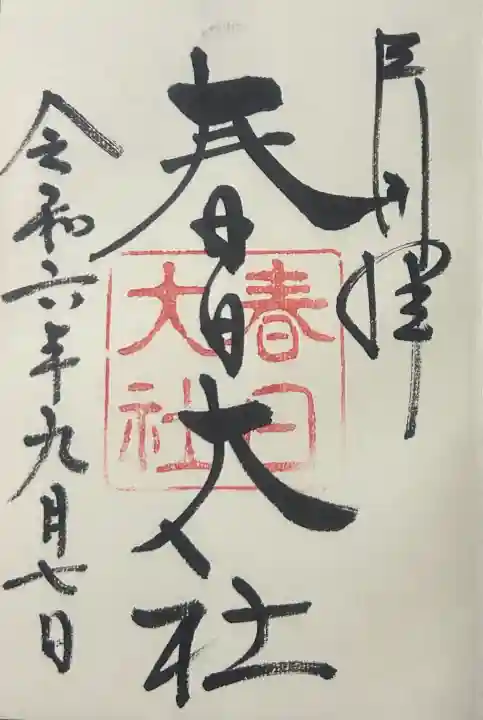 奉拝
春日大社
春日
大社
令和六年九月七日